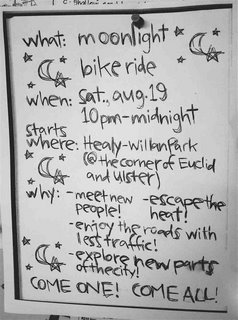 what: moonlight
bike ride
when: Sat., aug. 19
10pm-midnight
starts
where: Healy-Willan Park
(@ the corner of Euclid
and Ulster)
why: -meet new -escape the
people! heat!
-enjoy the roads with
less traffic!
-explore new parts
of the city!
COME ONE! COME ALL!